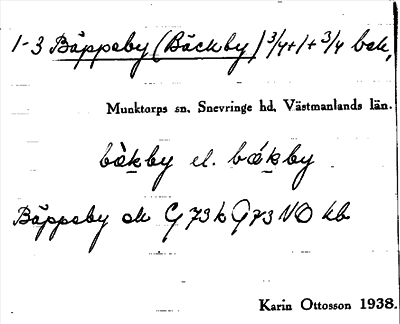 1-3 Bäppeby (Bäckby) 3/4+1+3/4 bek,
Munktorps sn, Snevringe hd, Västmanlands län.
bàkby el. bákby
Bäppeby ek G 73 NO kb
Karin Ottosson 1938.